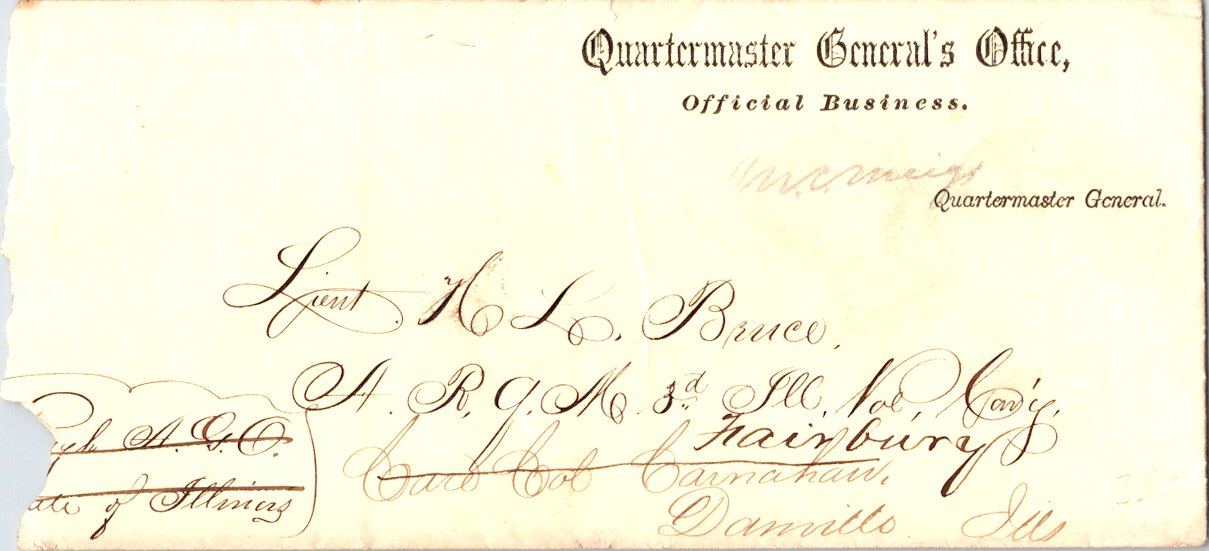 Quartermaster General's Office,
Official Business.
M. C. Meigs
Quartermaster General.
Lieut. H L. Bruce,
A. R. Q. M. 3.d Ill. Vol, Cav'y.
Fairbury
Care Col Carnahan,
Danville Ills
A. G. O.
of Illinois